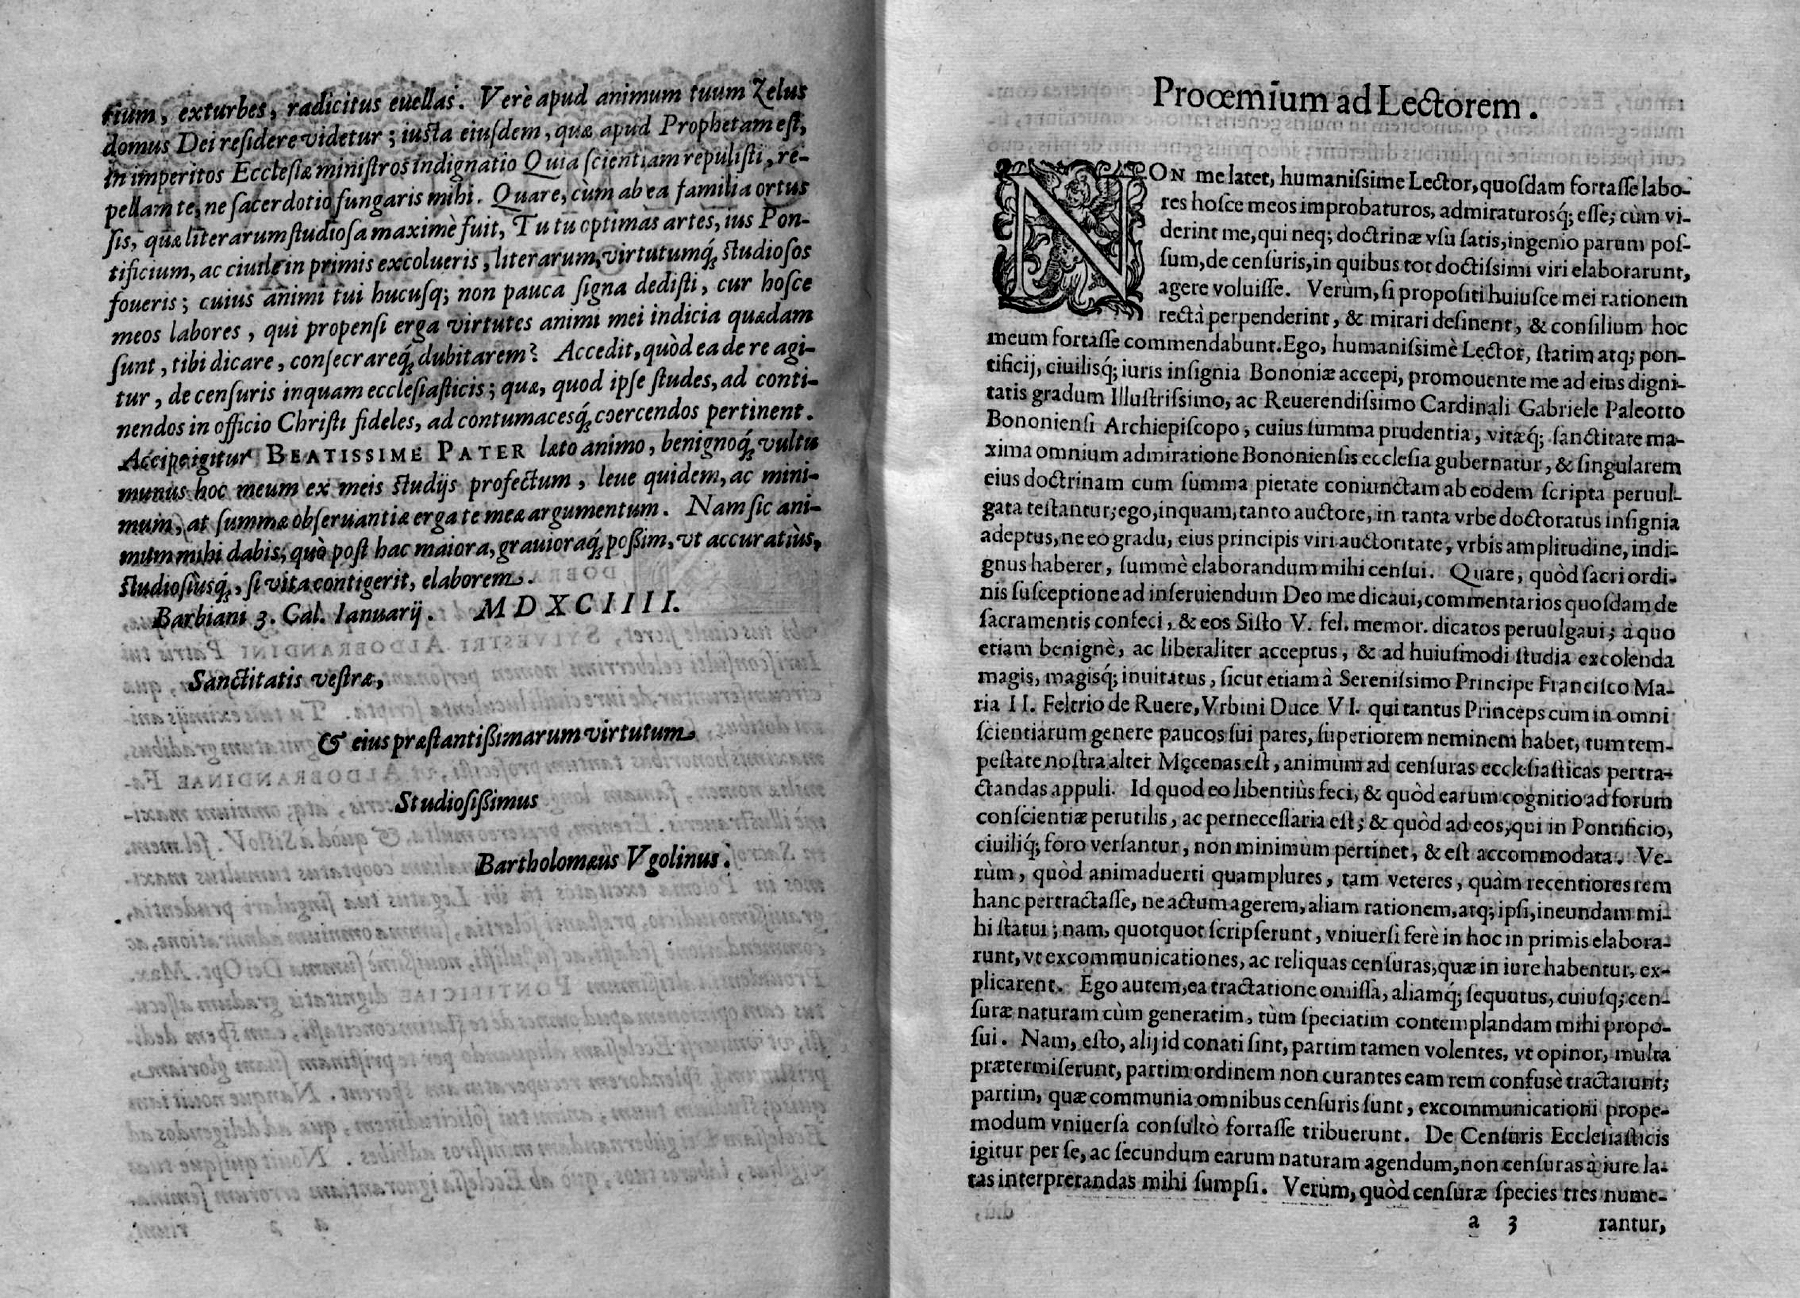 rium, exturbes, radicitus euellas. Verè apud animum tuum Zelus
domus Dei residere videtur; iusta eiusdem, quæ apud Prophetam est,
in imperitos Ecclesiæ ministros indignatio Quia scientiam repulisti, re-
pellam te, ne sacerdotio fungaris mihi. Quare, cùm ab ea familia ortus
sis, quæ literarum studiosa maximè fuit, Tu tū optimas artes, ius Pon-
tificium, ac ciuile in primis excolueris, literarum, virtutumq́; studiosos
foueris; cuius animi tui hucusq; non pauca signa dedisti, cur hosce
meos labores, qui propensi erga virtutes animi mei indicia quædam
sunt, tibi dicare, consecrareq́; dubitarem? Accedit, quòd ea de re agi-
tur, de censuris inquam ecclesiasticis; quæ, quod ipse studes, ad conti-
nendos in officio Christi fideles, ad contumacesq́; coercendos pertinent.
Accipe igitur BEATISSIME PATER læto animo, benignoq́; vultu
munus hoc meum ex meis studijs profectum, leue quidem, ac mini-
mum, at summæ obseruantiæ erga te meæ argumentum. Nam sic ani-
mum mihi dabis, quò post hac maiora, grauioraq́; possim, vt accuratiùs,
studiosiùsq́;, si vita contigerit, elaborem.
Barbiani 3. Cal. Ianuarij. MDXCIIII.
Sanctitatis vestræ,
& eius præstantissimarum virtutum
Studiosissimus
Bartholomæus Vgolinus.
Prooemium ad Lectorem.
NON me latet, humanissime Lector, quosdam fortasse labo-
res hosce meos improbaturos, admiraturosq́; esse; cùm vi-
derint me, qui neq; doctrinæ vsu satis, ingenio parum pos-
sum, de censuris, in quibus tot doctissimi viri elaborarunt,
agere voluisse. Verùm, si propositi huiusce mei rationem
rectà perpenderint, & mirari desinent, & consilium hoc
meum fortasse commendabunt. Ego, humanissimè Lector, statim atq; pon-
tificij, ciuilisq́; iuris insignia Bononiæ accepi, promouente me ad eius digni-
tatis gradum Illustrissimo, ac Reuerendissimo Cardinali Gabriele Paleotto
Bononiensi Archiepiscopo, cuius summa prudentia, vitæq́; sanctitate ma-
xima omnium admiratione Bononiensis ecclesia gubernatur, & singularem
eius doctrinam cum summa pietate coniunctam ab eodem scripta peruul-
gata testantur; ego, inquam, tanto auctore, in tanta vrbe doctoratus insignia
adeptus, ne eo gradu, eius principis viri auctoritate, vrbis amplitudine, indi-
gnus haberer, summè elaborandum mihi censui. Quare, quòd sacri ordi-
nis susceptione ad inseruiendum Deo me dicaui, commentarios quosdam de
sacramentis confeci, & eos Sisto V. fel. memor. dicatos peruulgaui; à quo
etiam benignè, ac liberaliter acceptus, & ad huiusmodi studia excolenda
magis, magisq́; inuitatus, sicut etiam à Serenissimo Principe Francisco Ma-
ria II. Feltrio de Ruere, Vrbini Duce VI. qui tantus Princeps cum in omni
scientiarum genere paucos sui pares, superiorem neminem habet, tum tem-
pestate nostra alter Męcenas est, animùm ad censuras ecclesiasticas pertra-
ctandas appuli. Id quod eo libentiùs feci, & quòd earum cognitio ad forum
conscientiæ perutilis, ac pernecessaria est; & quòd ad eos, qui in Pontificio,
ciuiliq́; foro versantur, non minimùm pertinet, & est accommodata. Ve-
rùm, quòd animaduerti quamplures, tam veteres, quàm recentiores rem
hanc pertractasse, ne actum agerem, aliam rationem, atq; ipsi, ineundam mi-
hi statui; nam, quotquot scripserunt, vniuersi ferè in hoc in primis elabora-
runt, vt excommunicationes, ac reliquas censuras, quæ in iure habentur, ex-
plicarent. Ego autem, ea tractatione omissa, aliamq́; sequutus, cuiusq; cen-
suræ naturam cùm generatim, tùm speciatim contemplandam mihi propo-
sui. Nam, esto, alij id conati sint, partim tamen volentes, vt opinor, multa
prætermiserunt, partim ordinem non curantes eam rem confusè tractarunt;
partim, quæ communia omnibus censuris sunt, excommunicationi prope-
modum vniuersa consultò fortasse tribuerunt. De Censuris Ecclesiasticis
igitur per se, ac secundum earum naturam agendum, non censuras à iure la-
tas interpretandas mihi sumpsi. Verùm, quòd censuræ species tres nume-
a 3 rantur,